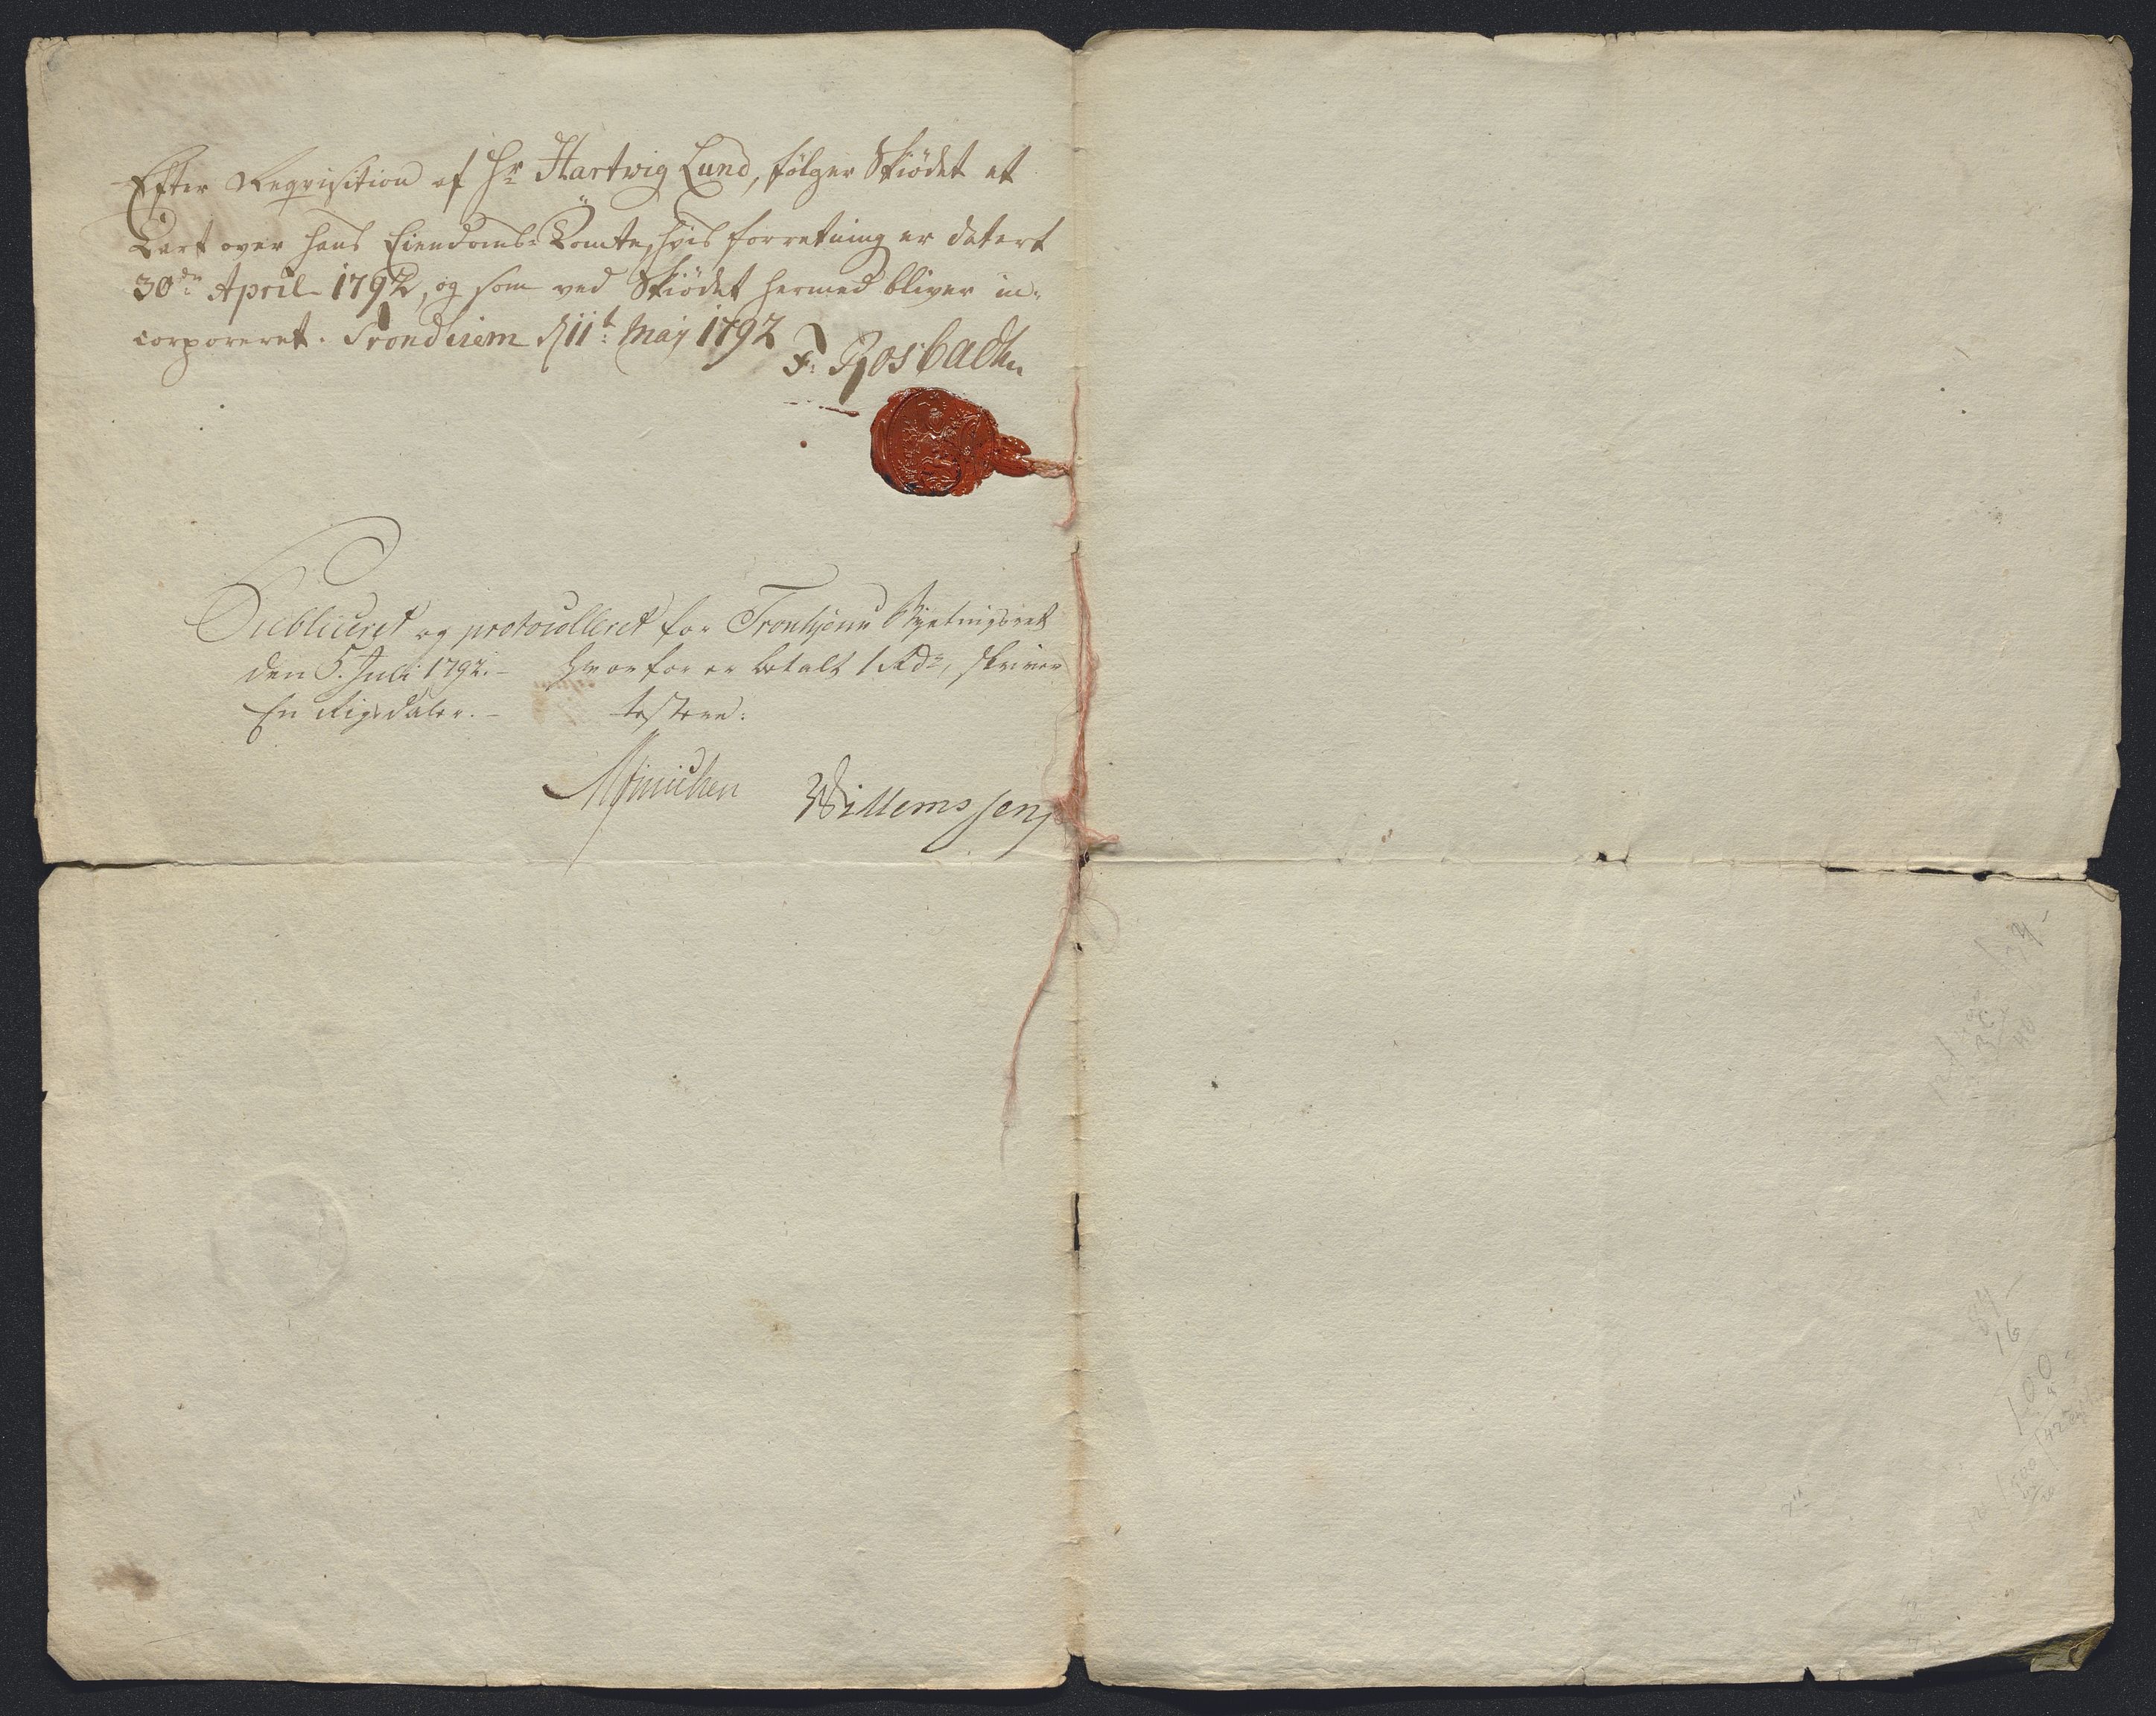 Efter Reqvisition af Hr Hartvig Lund, følger Skiödet et
Cart over hans Eiendoms-Tomte, hvis forretning er datert
30de April 1792, og som ved Skiödet hermed bliver in-
corporeret. Trondhiem d 11t May 1792
F. Rosbach
Publiceret og protocolleret for Tronhjems Byetingsret
den 5. Juli 1792. - hvorfor er betalt 1 Rdr, skriver
En Rigsdaler. - testere:
Münichen Willemssen
84
16
100